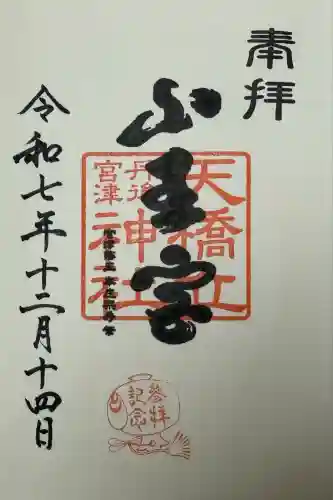 奉拝
山王宮
天橋立
神社
丹後
宮津
令和七年十二月十四日
参拝
記念